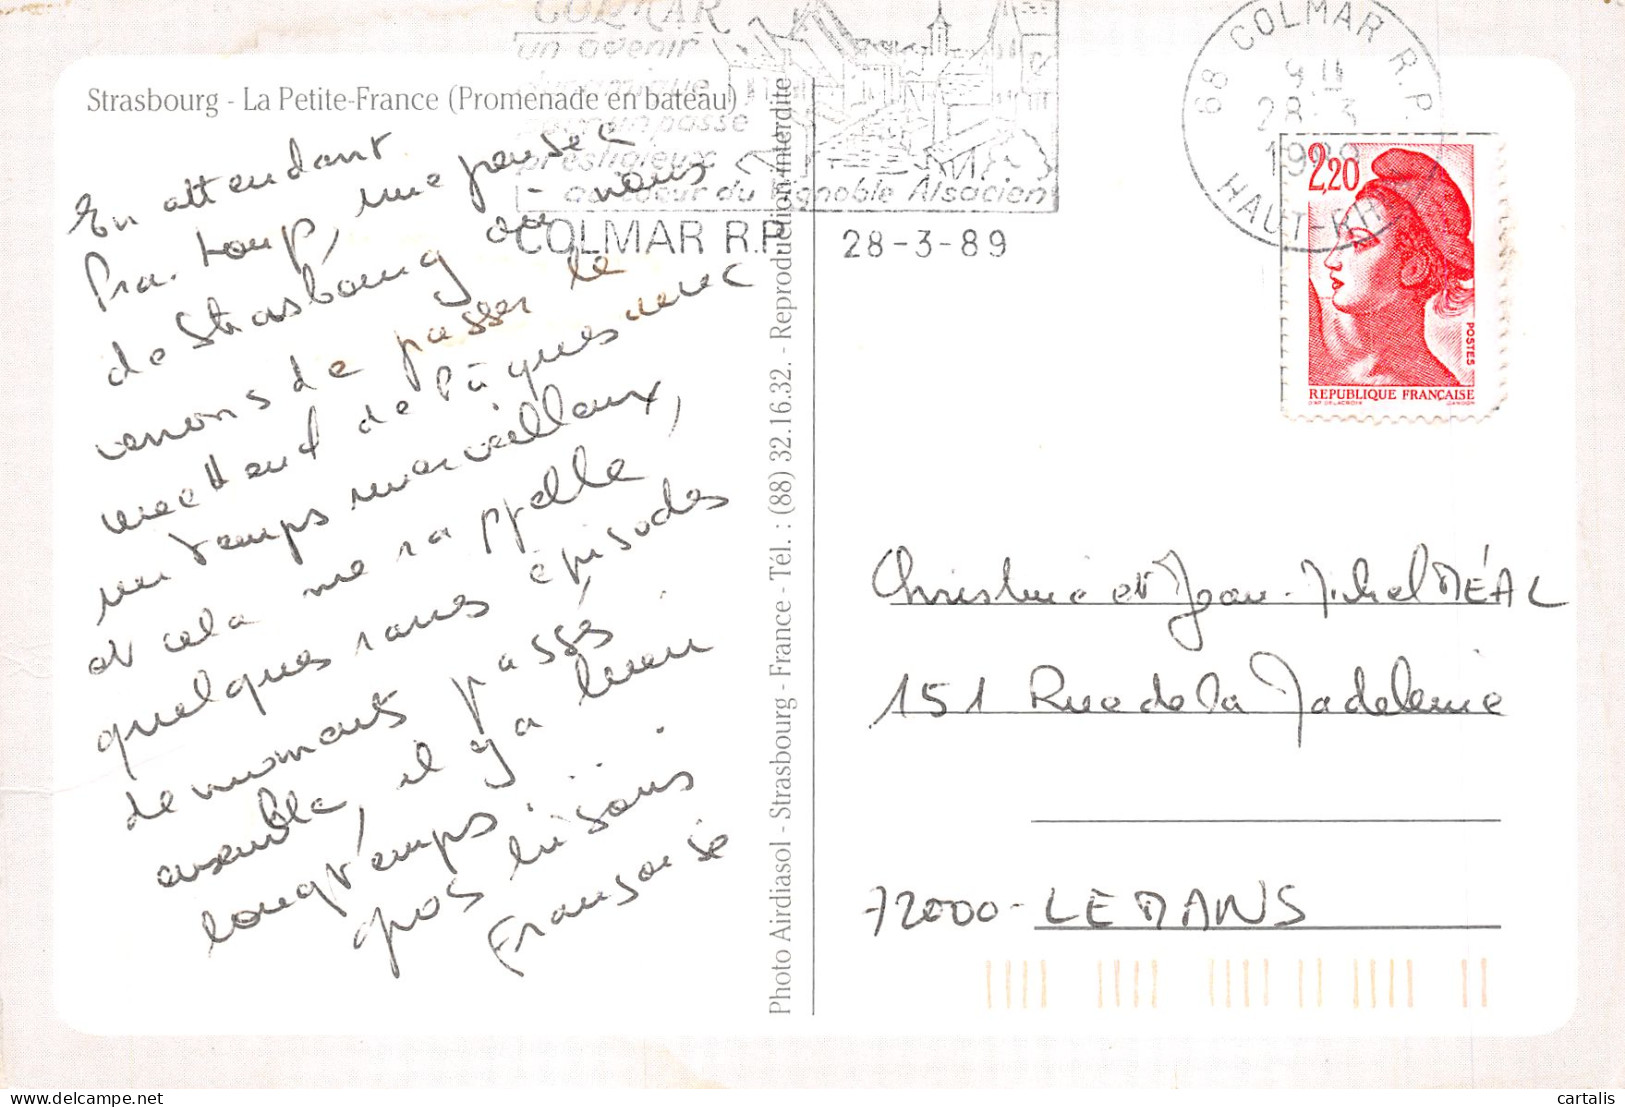 Strasbourg - La Petite-France (Promenade en bateau)
En attendant
Pra-Loup, une pensée
de Strasbourg où nous
venons de passer le
weekend de Pâques avec
un temps merveilleux,
et cela me rappelle,
quelques rares épisodes
de moments passés
ensemble, il y a bien
longtemps...
gros bisous
Françoise
Photo Airdiasol - Strasbourg - France - Tél. : (88) 32.16.32. - Reproduction interdite
COLMAR
un avenir
dynamique
pour un passé
prestigieux
au coeur du Vignoble Alsacien
COLMAR R.P. 28-3-89
68 COLMAR R.P.
28-3
1989
HAUT-RHIN
2,20
POSTES
REPUBLIQUE FRANÇAISE
D'AP. DELACROIX GANDON
Christine et Jean-Michel MÉAL
151 Rue de la Madeleine
72000 - LE MANS
cartalis
delcampe.net